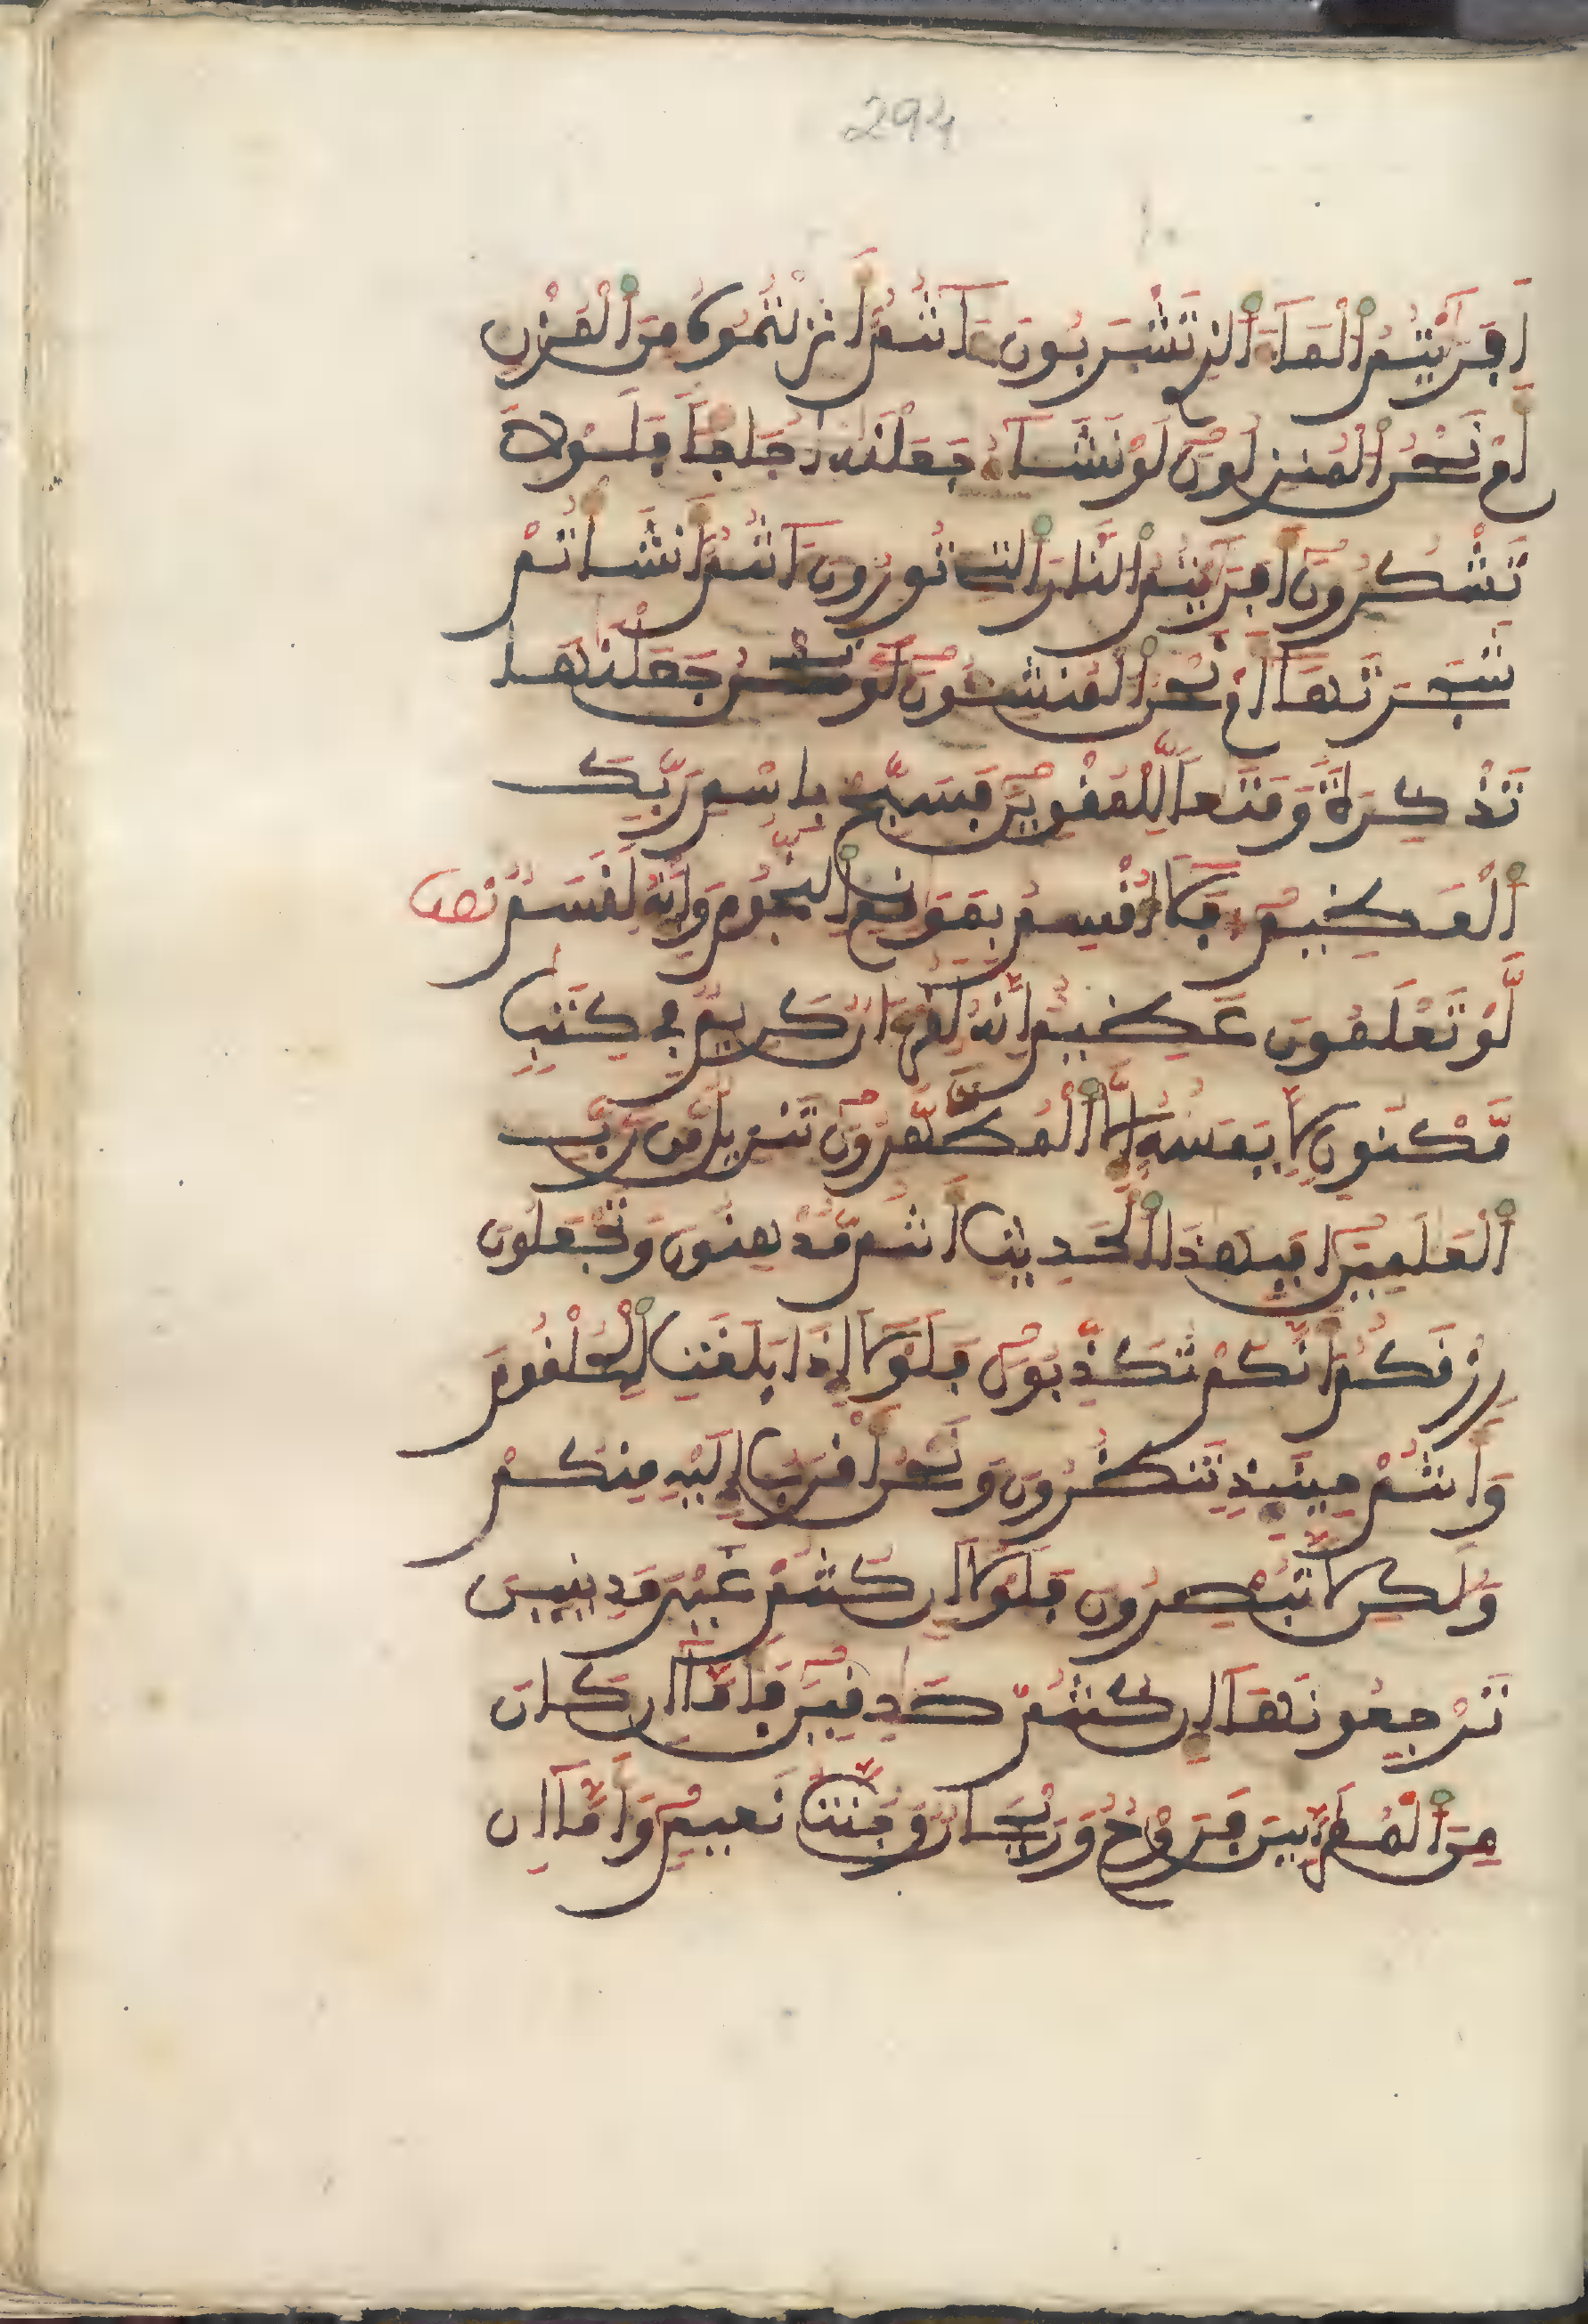 294
اَفَرَٰيْتُمُ اَ۬لْمَآءَ اَ۬لذِے تَشْرَبُونَ ءَآنتُمُۥٓ أَنزَلْتُمُوهُ مِنَ اَ۬لْمُزْنِ
أَمْ نَحْنُ اُ۬لْمُنزِلُونَ لَوْ نَشَآءُ جَعَلْنَٰهُ أُجَاجاً فَلَوْلَا
تَشْكُرُونَ اَفَرَٰيْتُمُ اُ۬لنَّارَ اَ۬لتِے تُورُونَ ءَآنتُمُۥٓ أَنشَأْتُمْ
شَجَرَتَهَآ أَمْ نَحْنُ اُ۬لْمُنشِـُٔونَ نَحْنُ جَعَلْنَٰهَا
تَذْكِرَةً وَمَتَٰعاً لِّلْمُقْوِينَ فَسَبِّحْ بِاسْمِ رَبِّكَ
اَ۬لْعَظِيمِ فَلَآ أُقْسِمُ بِمَوَٰقِعِ اِ۬لنُّجُومِ وَإِنَّهُۥ لَقَسَمٌ نصف
لَّوْ تَعْلَمُونَ عَظِيمٌ اِنَّهُۥ لَقُرْءَانٌ كَرِيمٌ فِے كِتَٰبٍ
مَّكْنُونٍ لَّا يَمَسُّهُۥٓ إِلَّا اَ۬لْمُطَهَّرُونَ تَنزِيلٌ مِّن رَّبِّ
اِ۬لْعَٰلَمِينَ أَفَبِهَٰذَا اَ۬لْحَدِيثِ أَنتُم مُّدْهِنُونَ وَتَجْعَلُونَ
رِزْقَكُمُۥٓ أَنَّكُمْ تُكَذِّبُونَ فَلَوْلَآ إِذَا بَلَغَتِ اِ۬لْحُلْقُومَ
وَأَنتُمْ حِينَئِذٍ تَنظُرُونَ وَنَحْنُ أَقْرَبُ إِلَيْهِ مِنكُمْ
وَلَٰكِن لَّا تُبْصِرُونَ فَلَوْلَآ إِن كُنتُمْ غَيْرَ مَدِينِينَ
تَرْجِعُونَهَآ إِن كُنتُمْ صَٰدِقِينَ فَأَمَّآ إِن كَانَ
مِنَ اَ۬لْمُقَرَّبِينَ فَرَوْحٌ وَرَيْحَانٌ وَجَنَّتُ نَعِيمٍ وَأَمَّآ إِن